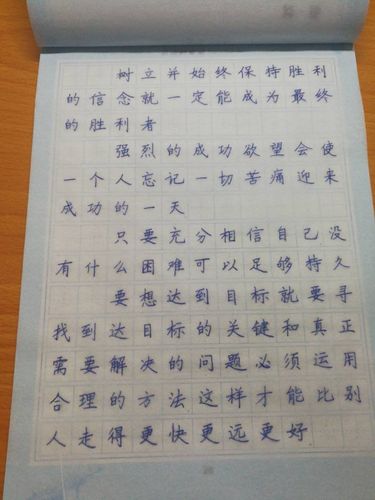 树立并始终保持胜利
的信念就一定能成为最终
的胜利者
强烈的成功欲望会使
一个人忘记一切苦痛迎来
成功的一天
只要充分相信自己没
有什么困难可以足够持久
要想达到目标就要寻
找到达目标的关键和真正
需要解决的问题必须运用
合理的方法这样才能比别
人走得更快更远更好